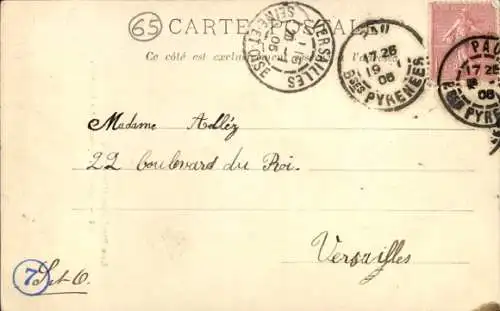 65 CARTE POSTALE
Ce côté est exclusivement
VERSAILLES
SEINE ET OISE
PAU
17 25
19 - 1
06
BSES PYRENEES
PAU
17 25
06
Madame Adléz
22 boulevard du Roi.
Versailles
7
S.et-O.